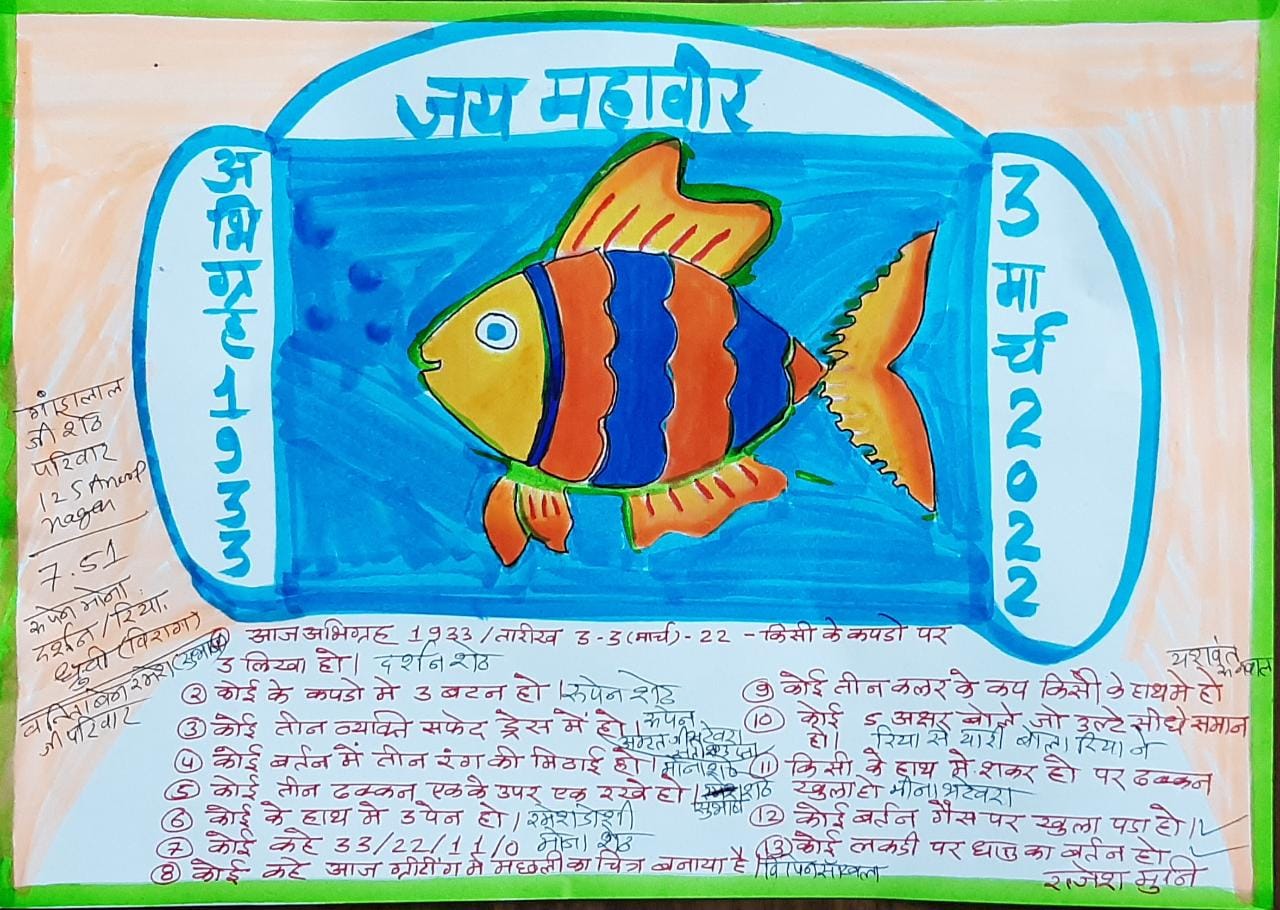 जय महावीर
अभिग्रह 1933
3 मार्च 2022
जी शेठ
परिवार
125 Anoop
nagar
7.51
रूपेन मोना
दर्शन / रिया
ध्रुवी (विराग)
जी परिवार
① आज अभिग्रह 1933 / तारीख 3-3 (मार्च) - 22 - किसी के कपडो पर
3 लिखा हो। दर्शन शेठ
② कोई के कपडो मे 3 बटन हो। रूपेन शेठ
③ कोई तीन व्यक्ति सफेद ड्रेस में हो। रूपेन
④ कोई बर्तन में तीन रंग की मिठाई हो। मोना शेठ
⑤ कोई तीन ढक्कन एक के उपर एक रखे हो। शेठ
सुभाष
⑥ कोई के हाथ मे 3 पेन हो। रमेश डोशी
⑦ कोई कहे 33/22/11/0 मोना शेठ
⑧ कोई कहे आज ग्रीटींग मे मछली का चित्र बनाया है।
यशवंत
⑨ कोई तीन कलर के कप किसी के हाथ मे हो
⑩ कोई 5 अक्षर बोले जो उल्टे सीधे समान
हो। रिया से यारी बोला रिया ने
⑪ किसी के हाथ मे शकर हो पर ढक्कन
खुला हो मीना भटेवरा
⑫ कोई बर्तन गैस पर खुला पडा हो।
⑬ कोई लकडी पर धातु का बर्तन हो
राजेश मुनि